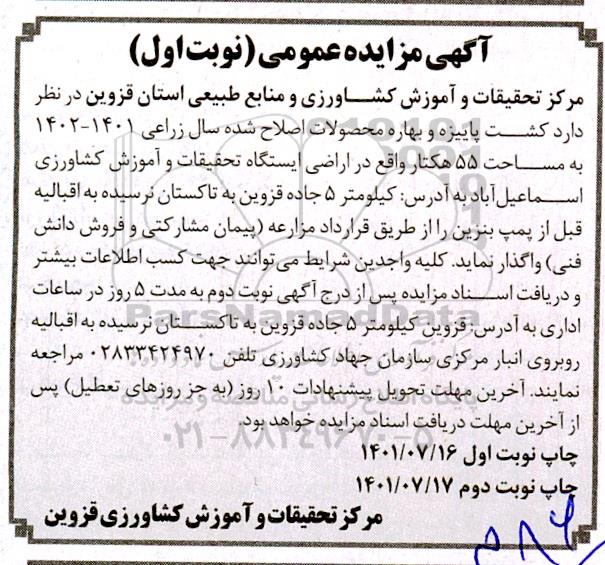 آگهی مزایده عمومی (نوبت اول)
مرکز تحقیقات و آموزش کشاورزی و منابع طبیعی استان قزوین در نظر
دارد کشت پاییزه و بهاره محصولات اصلاح شده سال زراعی ۱۴۰۱-۱۴۰۲
به مساحت ۵۵ هکتار واقع در اراضی ایستگاه تحقیقات و آموزش کشاورزی
اسماعیل‌آباد به آدرس: کیلومتر ۵ جاده قزوین به تاکستان نرسیده به اقبالیه
قبل از پمپ بنزین را از طریق قرارداد مزارعه (پیمان مشارکتی و فروش دانش
فنی) واگذار نماید. کلیه واجدین شرایط می‌توانند جهت کسب اطلاعات بیشتر
و دریافت اسناد مزایده پس از درج آگهی نوبت دوم به مدت ۵ روز در ساعات
اداری به آدرس: قزوین کیلومتر ۵ جاده قزوین به تاکستان نرسیده به اقبالیه
روبروی انبار مرکزی سازمان جهاد کشاورزی تلفن ۰۲۸۳۳۴۲۴۹۷۰ مراجعه
نمایند. آخرین مهلت تحویل پیشنهادات ۱۰ روز (به جز روزهای تعطیل) پس
از آخرین مهلت دریافت اسناد مزایده خواهد بود.
چاپ نوبت اول ۱۴۰۱/۰۷/۱۶
چاپ نوبت دوم ۱۴۰۱/۰۷/۱۷
مرکز تحقیقات و آموزش کشاورزی قزوین
ParsNamadData
۰۲۱-۸۸۳۴۹۶۷۰-۵